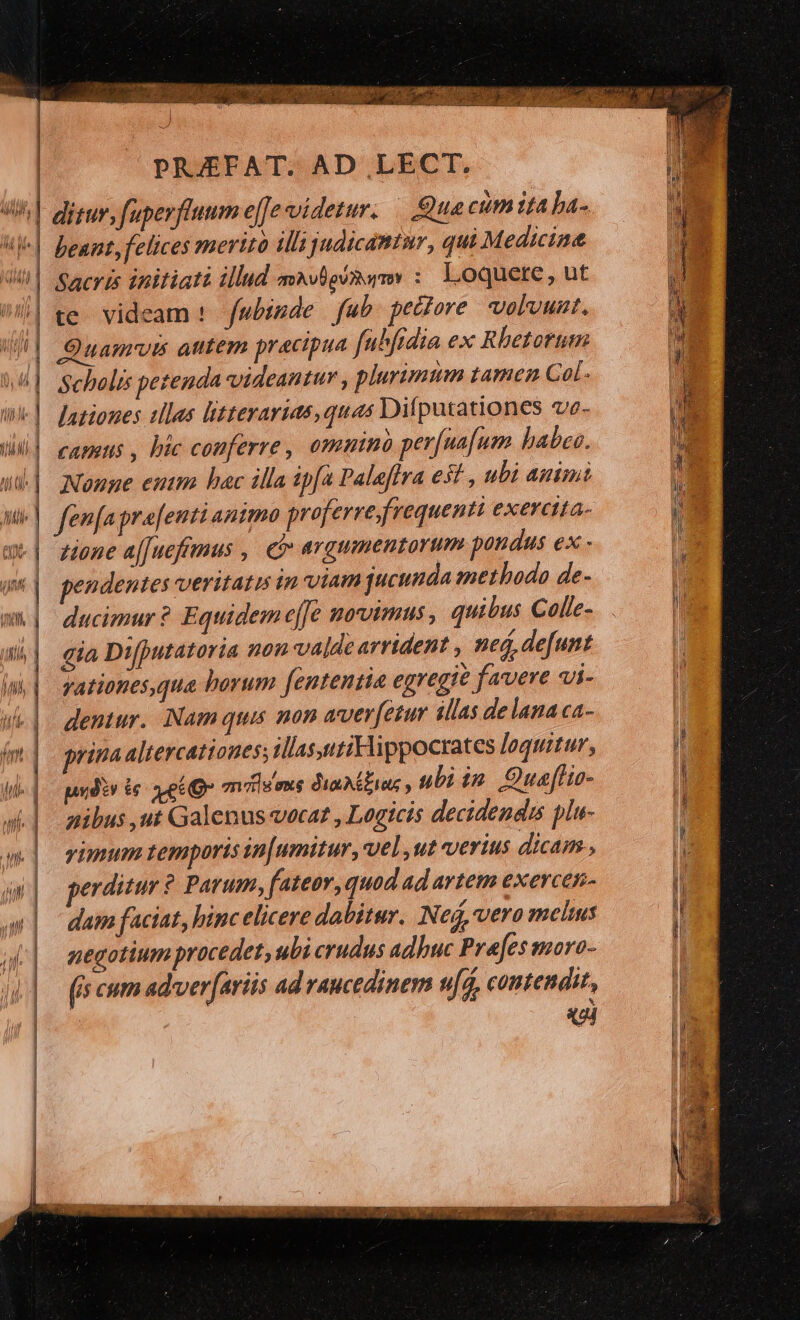 PRÆFAT. AD LECT.
ditur, ſuperfluum eſſe videtur. Quæ cùm ita ha-
beant, felices meritò illi judicantur, qui Medicinæ
Sacris initiati illud πολυθρύλητον : Loquere, ut
te videam : ſubinde ſub pectore volvunt.
Quamvis autem præcipua ſubſidia ex Rhetorum
Scholis petenda videantur, plurimùm tamen Col-
lationes illas litterarias, quas Diſputationes vo-
camus, hìc conferre, omninò perſuaſum habeo.
Nonne enim hæc illa ipſa Palæſtra est, ubi animi
ſenſa præſenti animo proferre, frequenti exercita-
tione aſſueſimus, & argumentorum pondus ex-
pendentes veritatis in viam jucunda methodo de-
ducimur? Equidem eſſe novimus, quibus Colle-
gia Diſputatoria non valde arrident, neq; deſunt
rationes, quæ horum ſententiæ egregiè favere vi-
dentur. Nam quis non averſetur illas de lana ca-
prina altercationes; illas, uti Hippocrates loquitur,
μηδὲν ἐς χρέ@- διαλέξιας, ubi in Quæſtio-
nibus, ut Galenus vocat, Logicis decidendis plu-
rimum temporis inſumitur, vel, ut verius dicam,
perditur? Parum, fateor, quod ad artem exercen-
dam faciat, hinc elicere dabitur. Neq; vero melius
negotium procedet, ubi crudus adhuc Præſes moro-
ſis cum adverſariis ad raucedinem uſq; contendit,